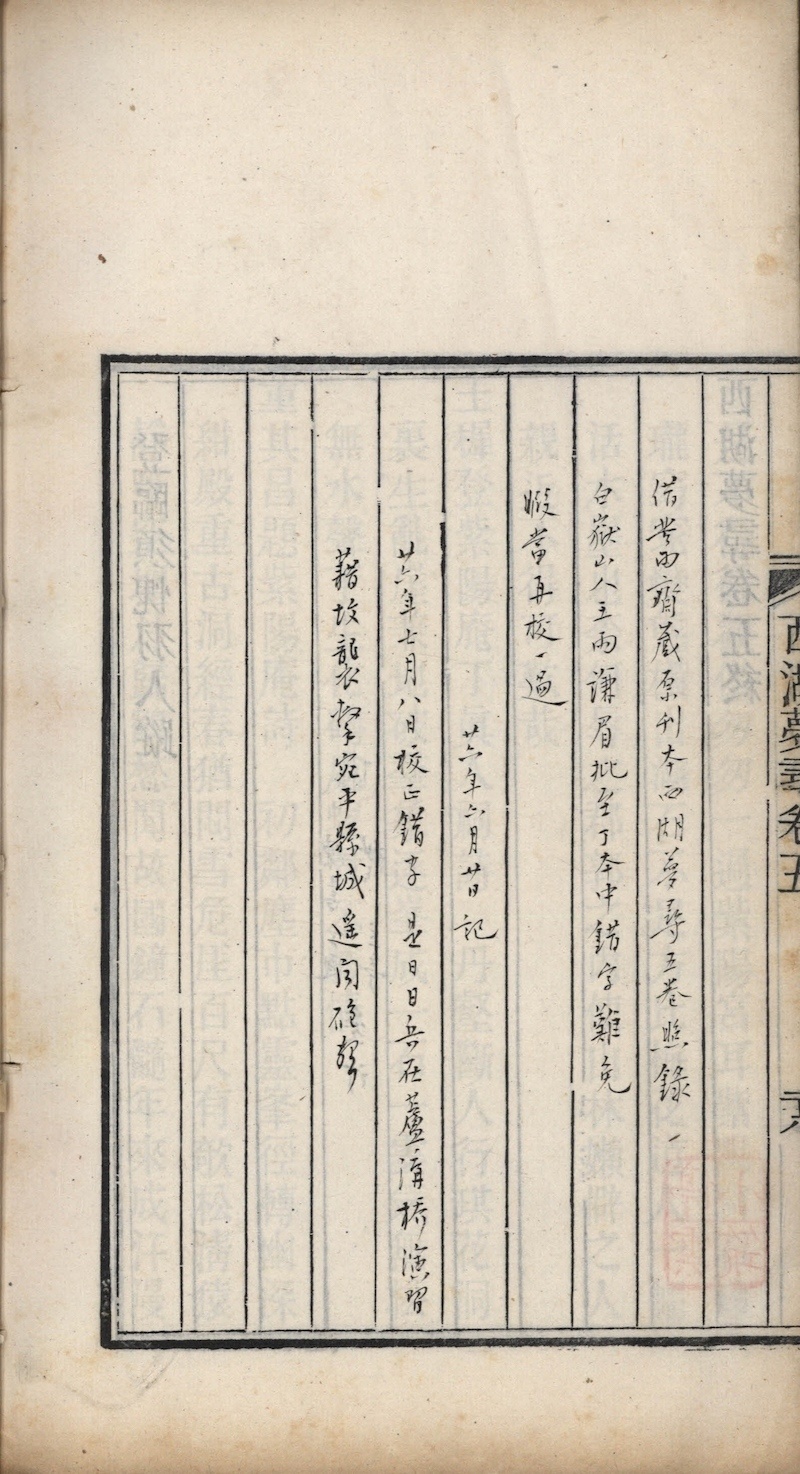 西湖夢尋卷五
借苦雨齋藏原刊本西湖夢尋五卷照錄
白嶽山人王雨謙眉批至丁本中錯字難免
暇當再校一過
廿六年六月廿日記
廿六年七月八日校正錯字 是日日兵在蘆溝橋演習
藉故襲擊宛平縣城遙聞砲聲